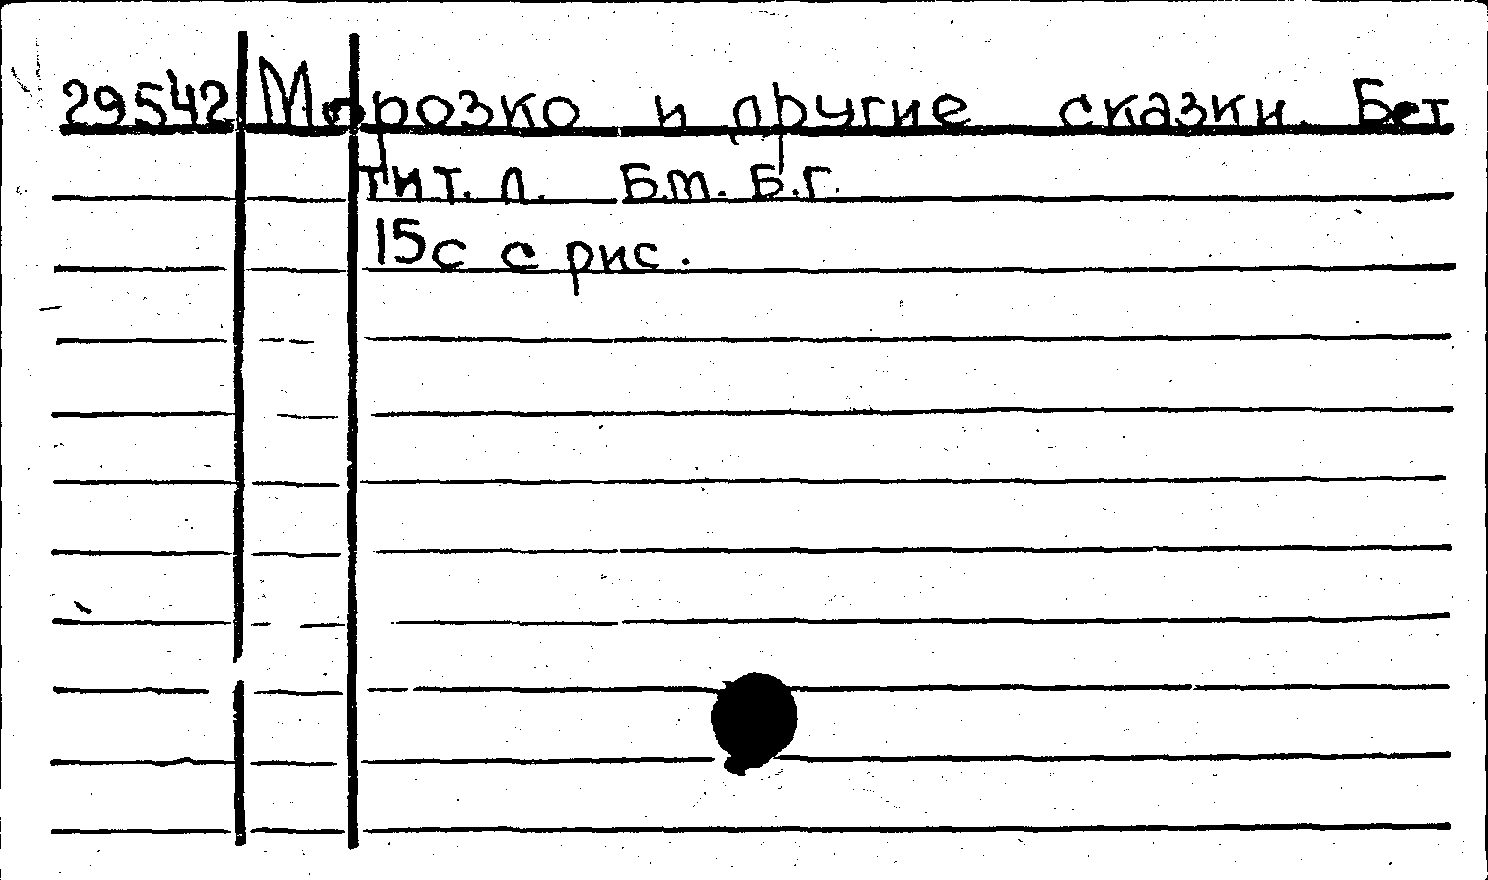 29542 Морозко и другие сказки. Бет
тит. л. Б.м. Б.г.
15с с рис.